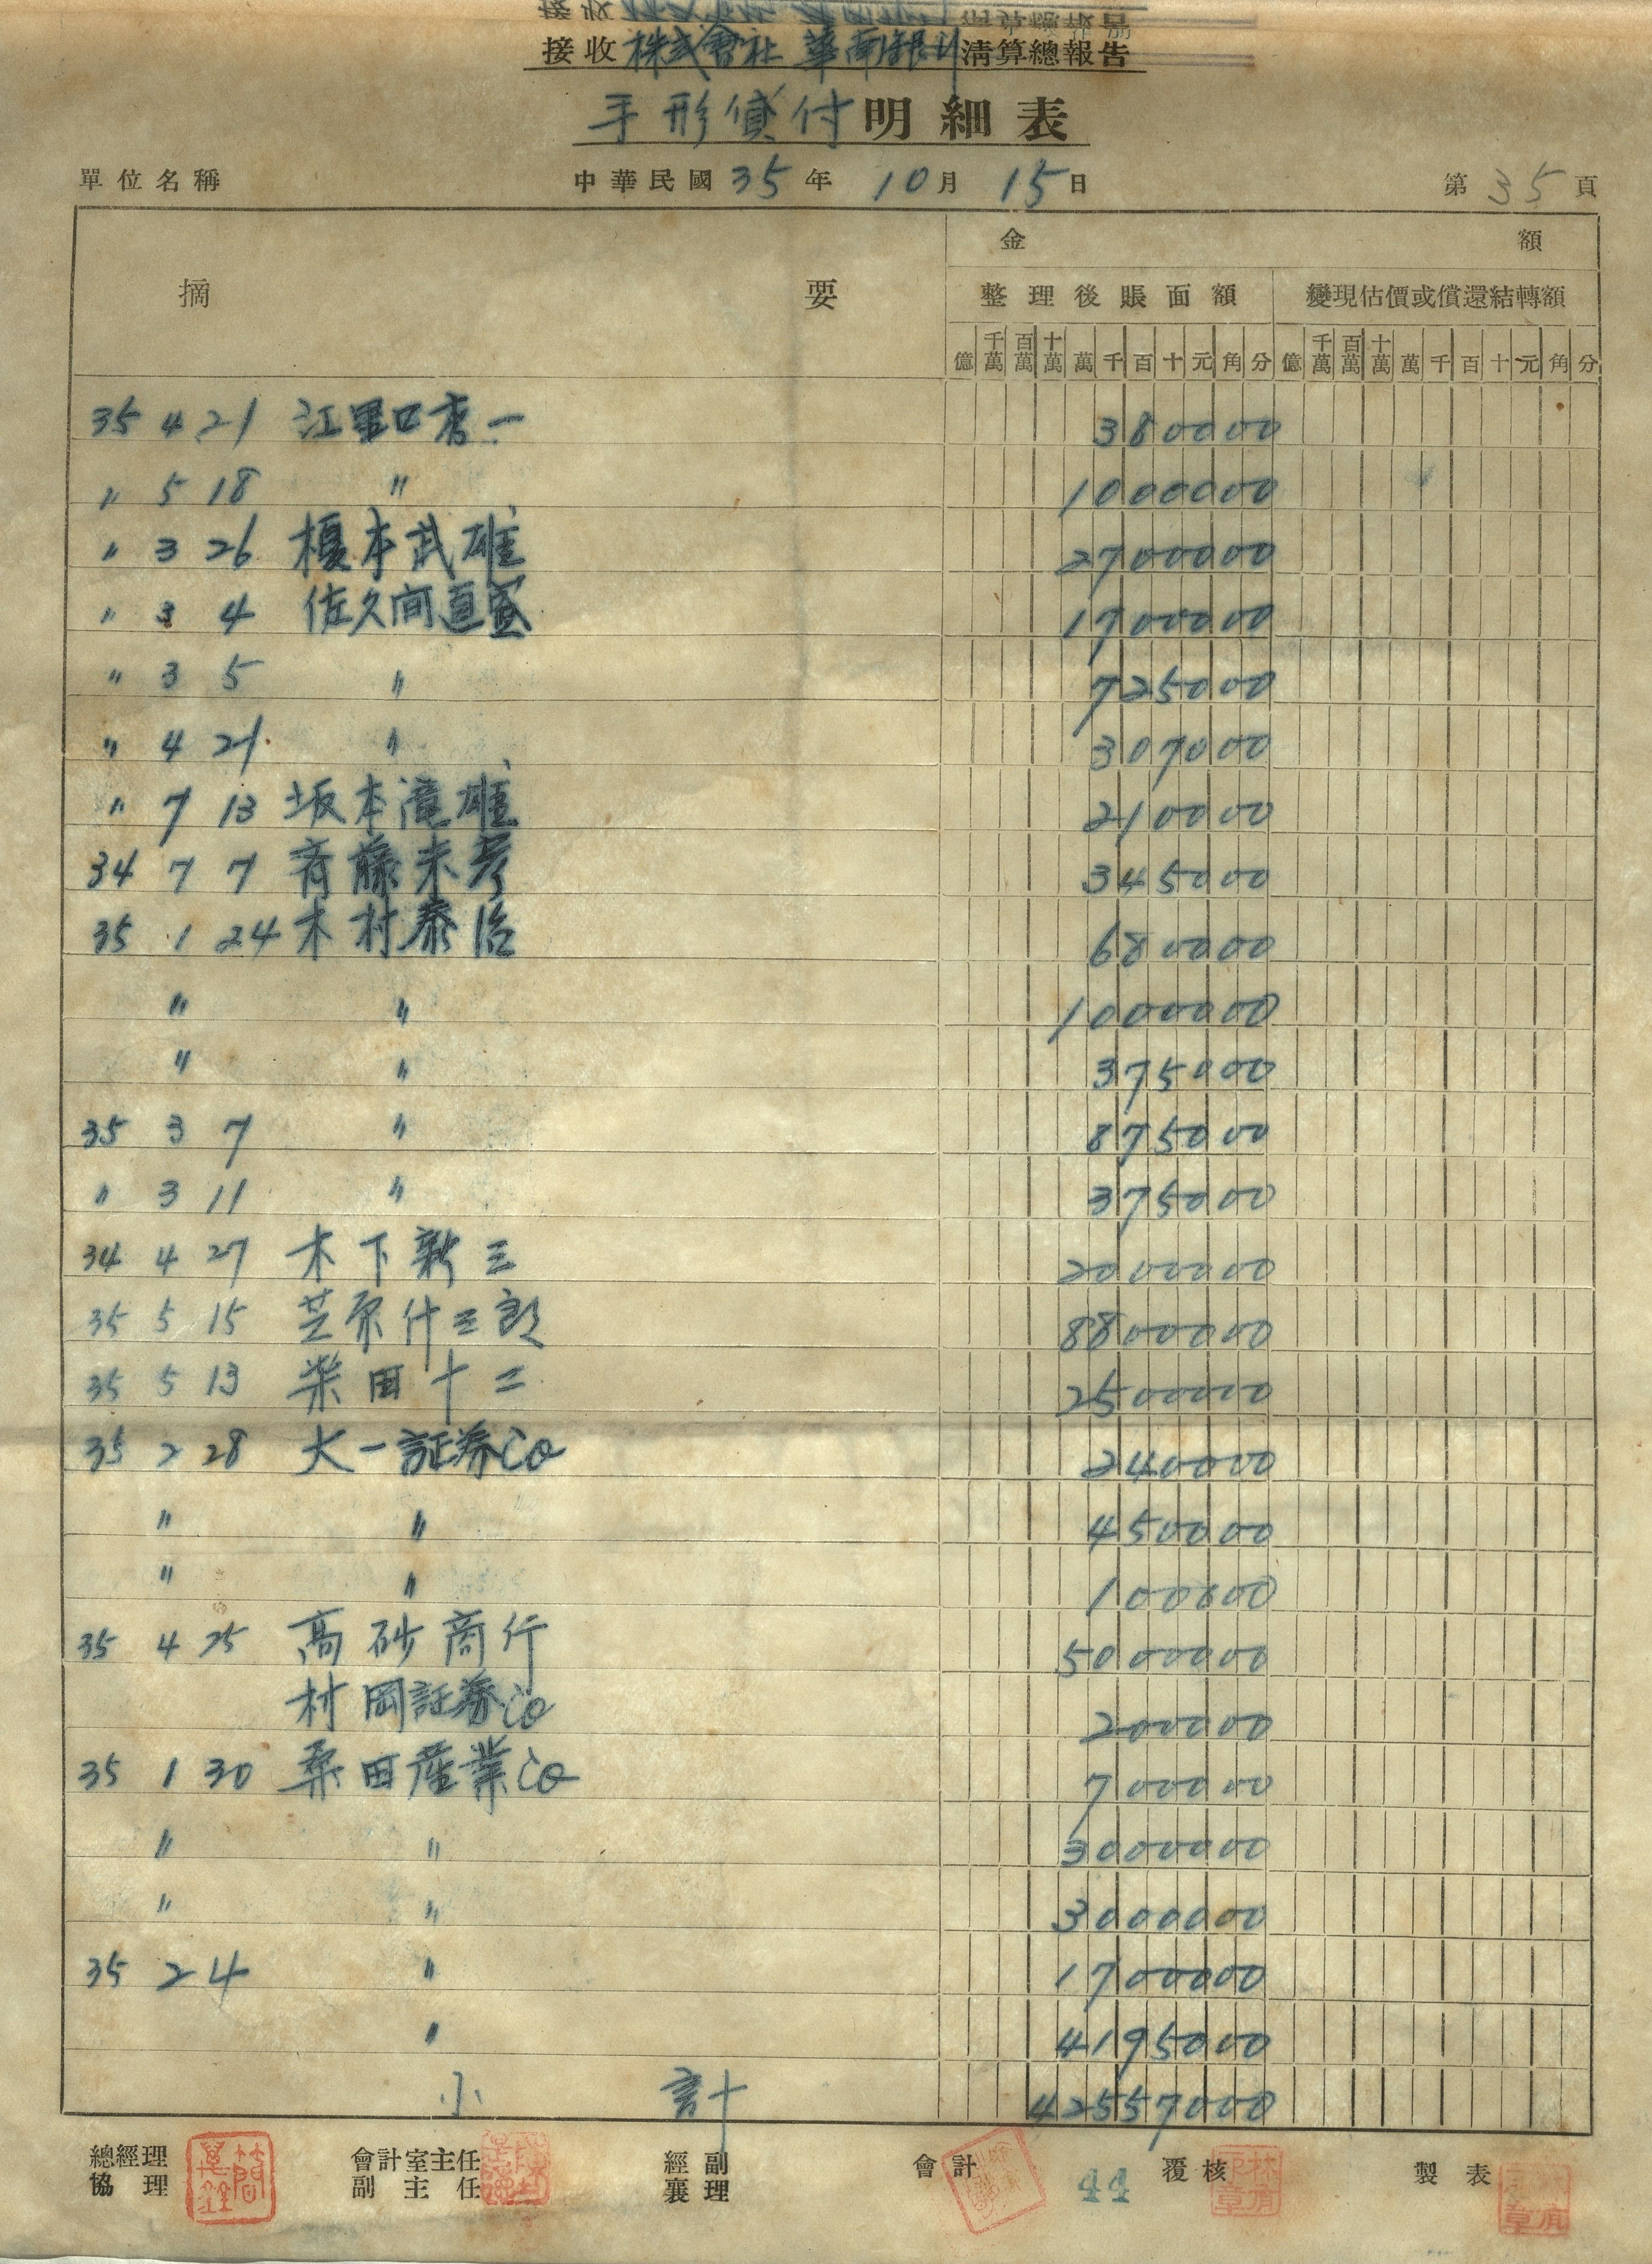 接收株式會社華南銀行清算總報告
手形貸付明細表
單位名稱 中華民國35年10月15日 第35頁
摘要 金額
整理後賬面額 變現估價或償還結轉額
億 千萬 百萬 十萬 萬 千 百 十 元 角 分 億 千萬 百萬 十萬 萬 千 百 十 元 角 分
35 4 21 江里口秀一 380000
〃 5 18 〃 1000000
〃 3 26 榎本武雄 2700000
〃 3 4 佐久间直 1700000
〃 3 5 〃 725000
〃 4 21 〃 307000
〃 7 13 坂本滝雄 210000
34 7 7 斉藤末彦 345000
35 1 24 木村泰治 680000
〃 〃 1000000
〃 〃 375000
35 3 7 〃 875000
〃 3 11 〃 375000
34 4 27 木下新三 2000000
35 5 15 芝原什三郎 8800000
35 5 13 柴田十二 2500000
35 2 28 大一証券Co 240000
〃 〃 450000
〃 〃 100000
35 4 25 高砂商行 5000000
村岡証券Co 200000
35 1 30 桑田産業Co 700000
〃 〃 3000000
〃 〃 3000000
35 2 4 〃 1700000
〃 4195000
小計 42557000
總經理 會計室主任 經副 會計 44 覆核 製表
協理 副主任 襄理